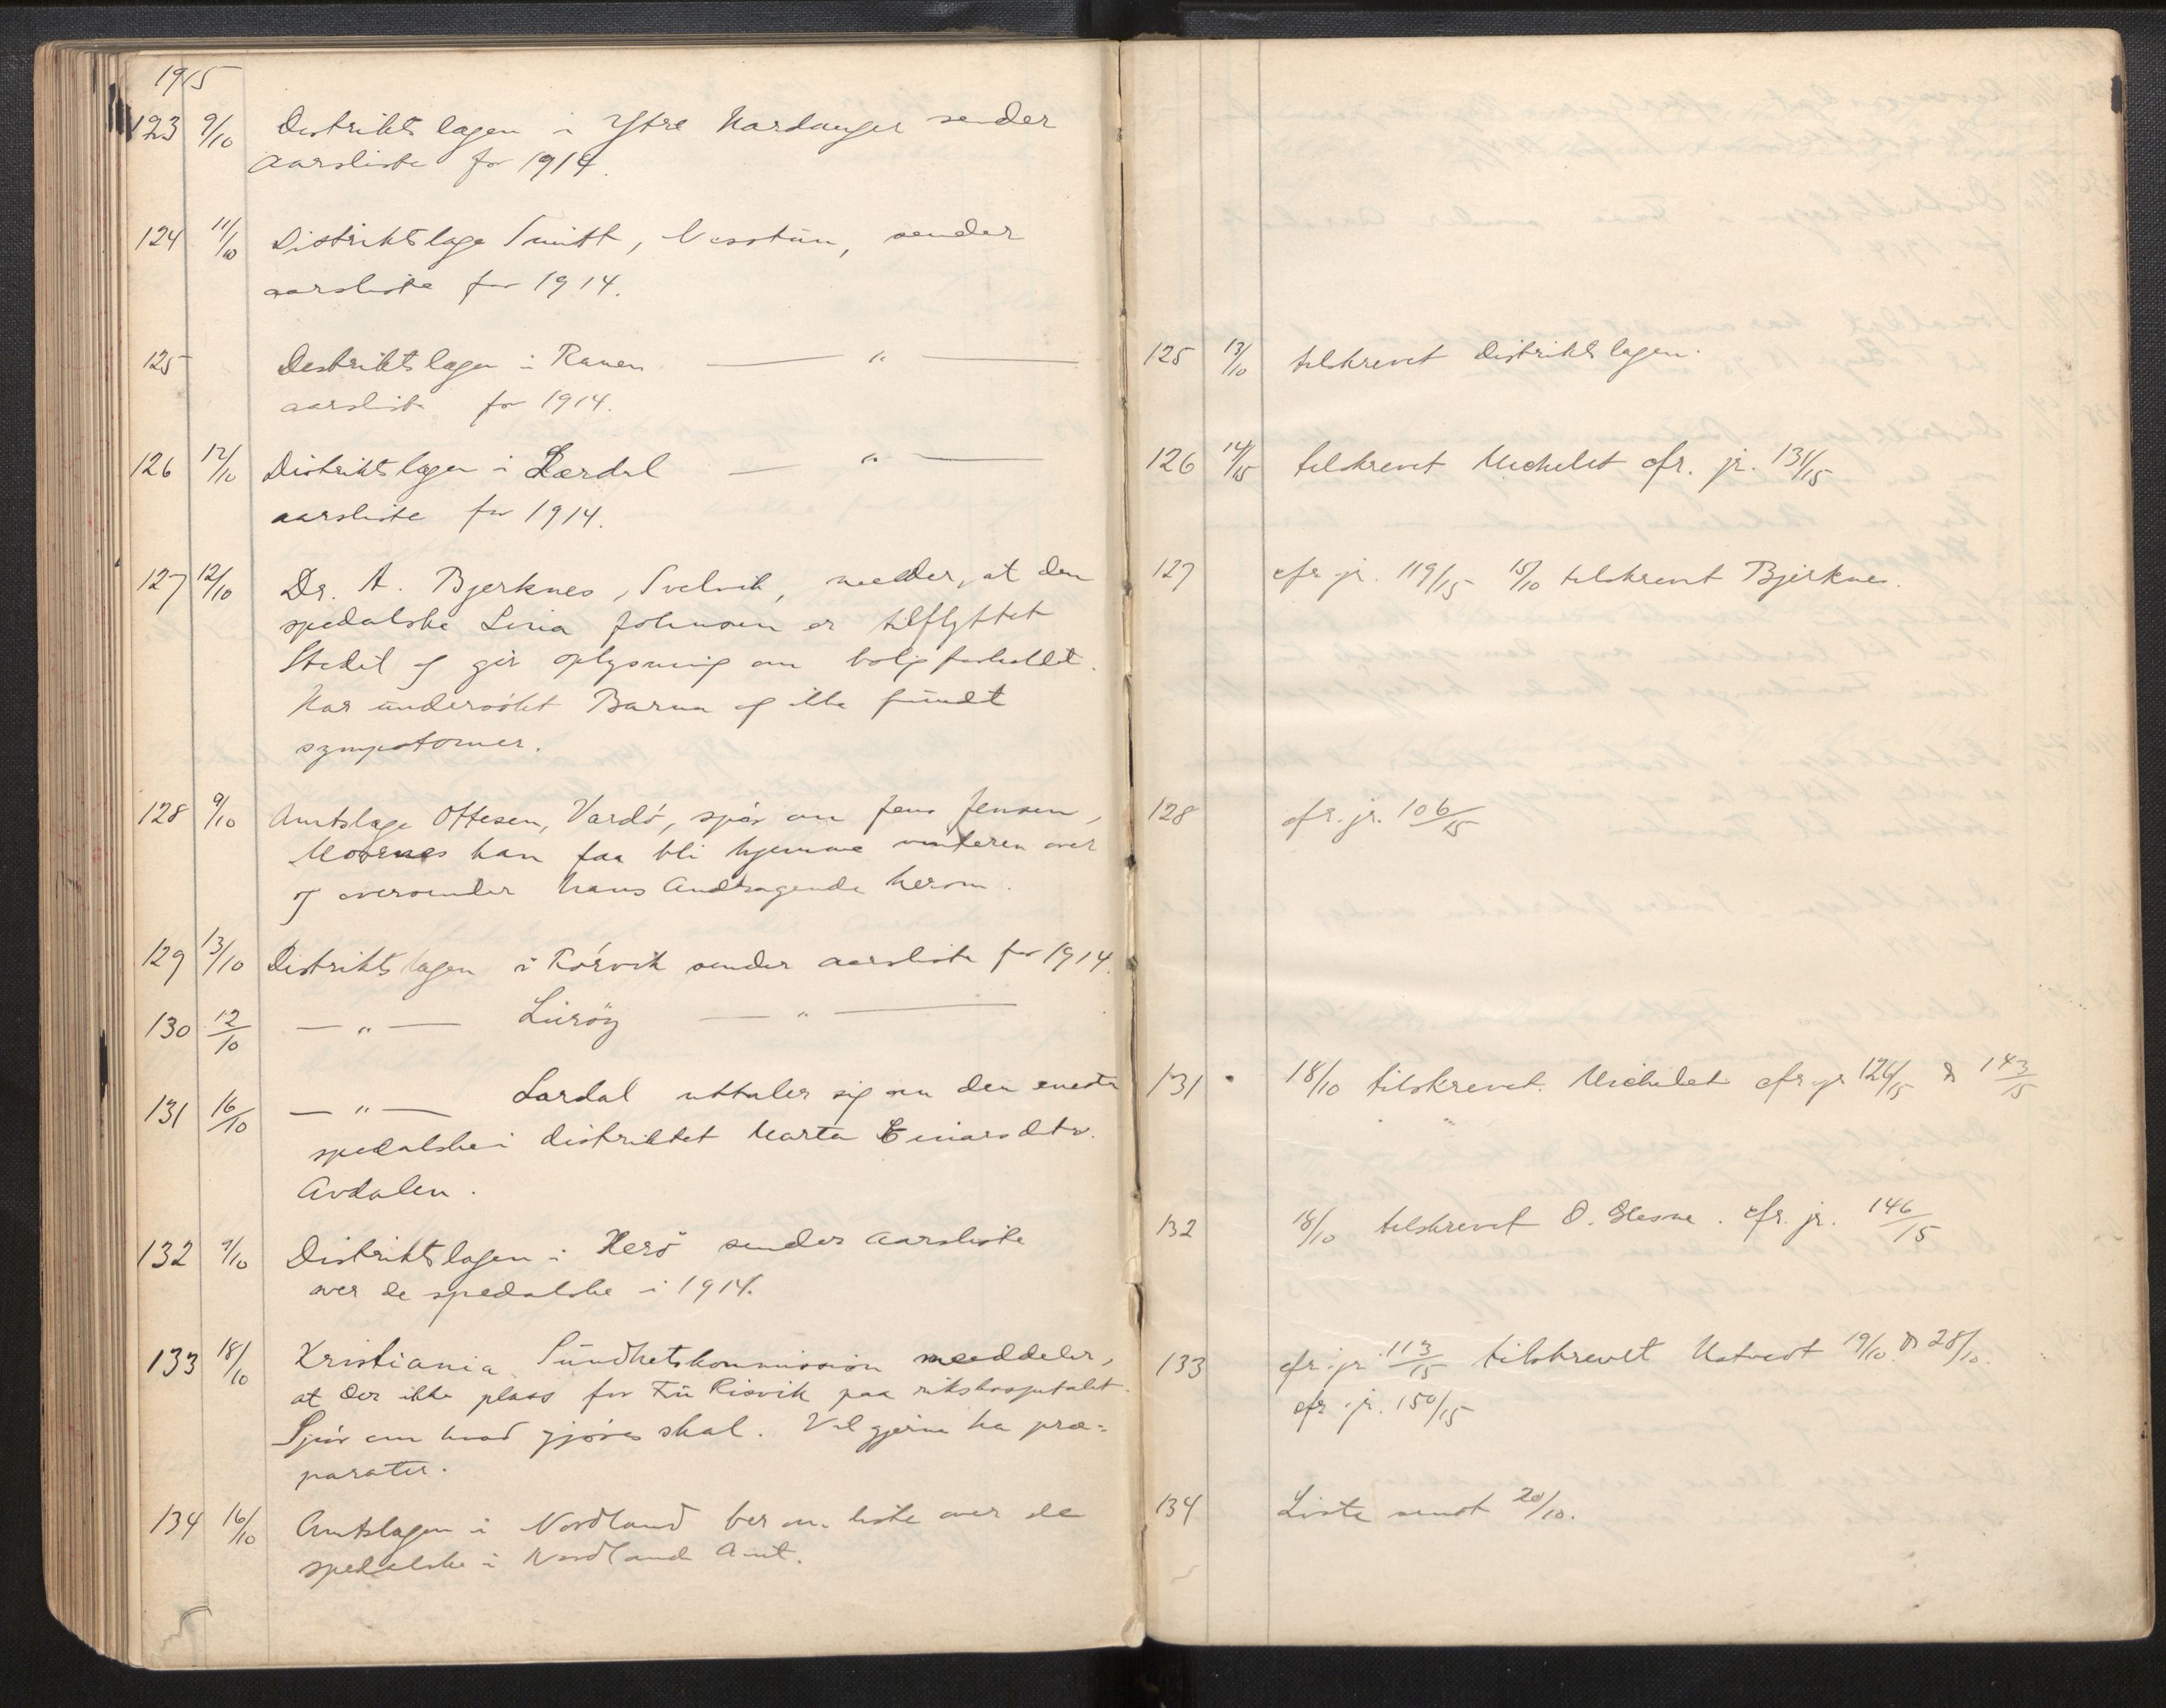 1915
123 9/10 Distriktslægen i Ytre Hardanger sender
aarsliste for 1914.
124 11/10 Distriktslæge Smitt, Nesstun, sender
aarsliste for 1914.
125 Distriktslægen i Ranen — " —
aarsliste for 1914.
126 12/10 Distriktslægen i Lærdal — " —
aarsliste for 1914.
127 12/10 Dr. A. Bjerknes, Svelvik, melder, at den
spedalske Lina Johnsen er tilflyttet
Stedet og gir oplysning om boligforholdet.
Har undersökt Barna og ikke fundt
symptomer.
128 9/10 Amtslæge Ottesen, Vardö, spör om Jens Jensen,
kan faa bli hjemme vinteren over
og oversender hans Andragende herom.
129 13/10 Distriktslægen i Rörvik sender aarsliste for 1914.
130 12/10 — " — Luröy — " —
131 16/10 — " — Lærdal uttaler sig om den eneste
spedalske i distriktet Marta Einarsdtr.
Avdalen.
132 9/10 Distriktslægen i Herö sender aarsliste
over de spedalske i 1914.
133 18/10 Kristiania Sundhetskommission meddeler,
at der ikke plass for Fru Risvik paa rikshospitalet.
Spör om hvad gjöres skal. Vil gjerne ha præ-
parater.
134 16/10 Amtslægen i Nordland ber om liste over de
spedalske i Nordlands Amt.
125 13/10 tilskrevet Distriktslægen.
126 14/15 tilskrevet Michelet cfr. jr. 131/15
127 cfr. jr. 119/15 15/10 tilskrevet Bjerknes.
128 cfr. jr. 106/15
131 18/10 tilskrevet Michelet cfr jr 126/15 & 143/15
"
132 18/10 tilskrevet O. cfr. jr. 146/15
133 cfr. jr. 113/15 tilskrevet Ustvedt 19/10 & 28/10.
cfr. jr. 150/15
134 Liste sendt 20/10.